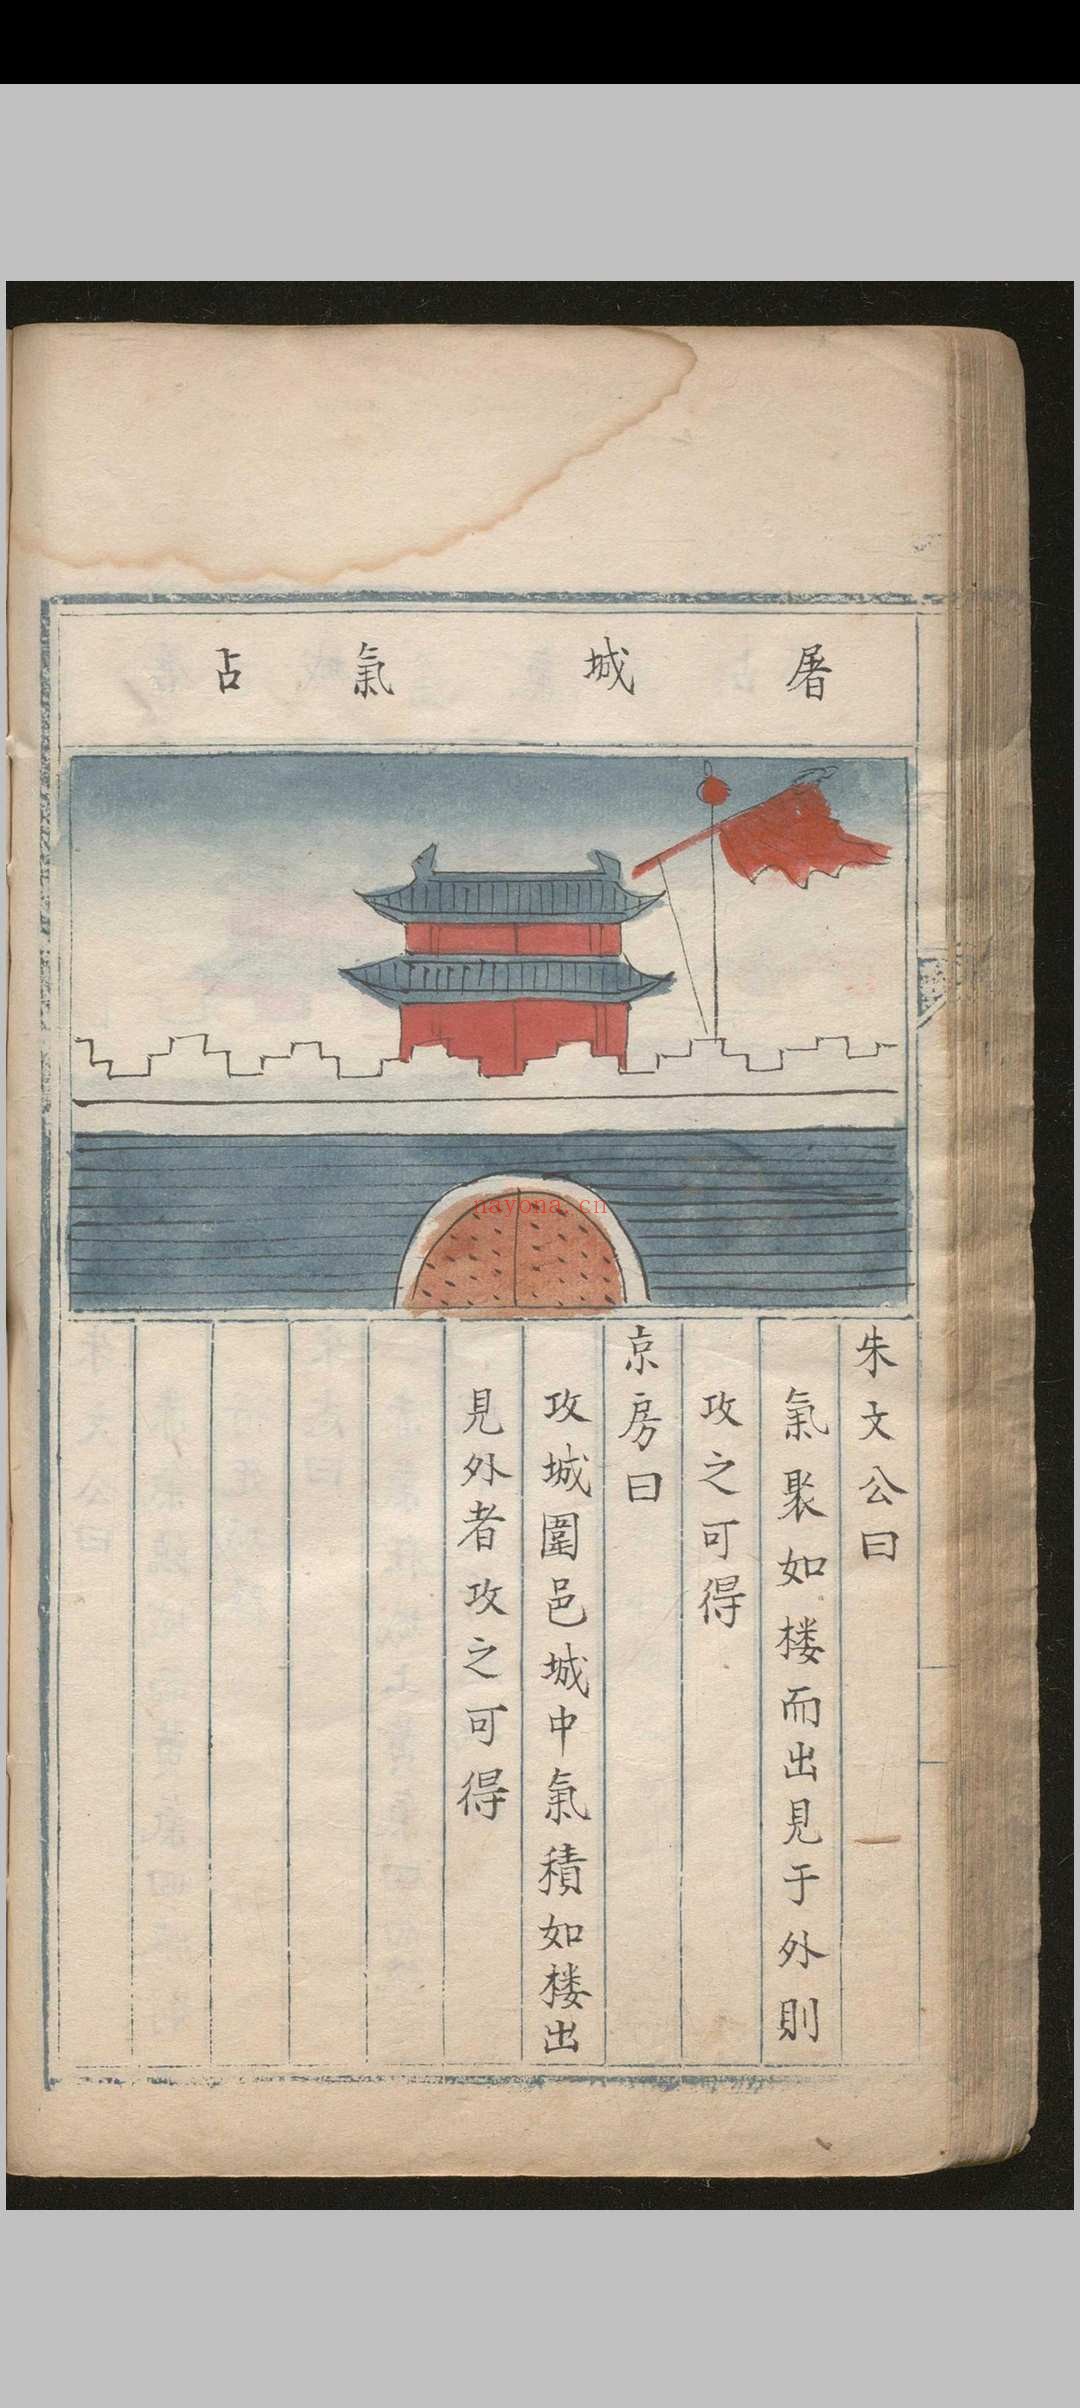 屠城氣占
朱文公曰
氣聚如楼而出見于外則
攻之可得
京房曰
攻城圍邑城中氣積如楼出
見外者攻之可得
nayona.cn